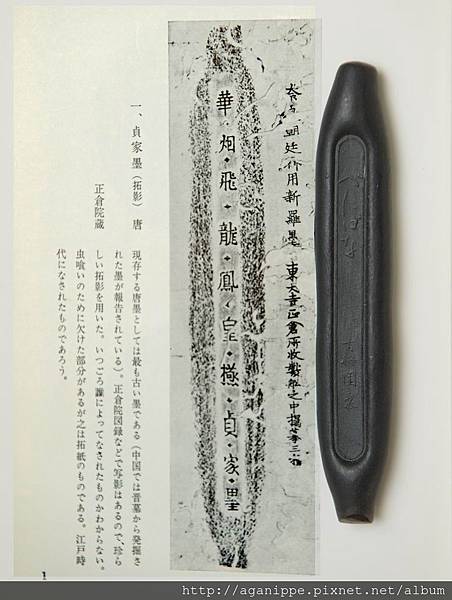 華烟飛龍鳳皇極貞家墨
一、貞家墨（拓影）　唐
正倉院蔵
現存する唐墨としては最も古い墨である（中国では晋墓から発掘さ
れた墨が報告されている）。正倉院図録などで写影はあるので、珍ら
しい拓影を用いた。いつごろ誰によってなされたものかわからない。
虫喰いのために欠けた部分があるが之は拓紙のものである。江戸時
代になされたものであろう。
1
http://aganippe.pixnet.net/album